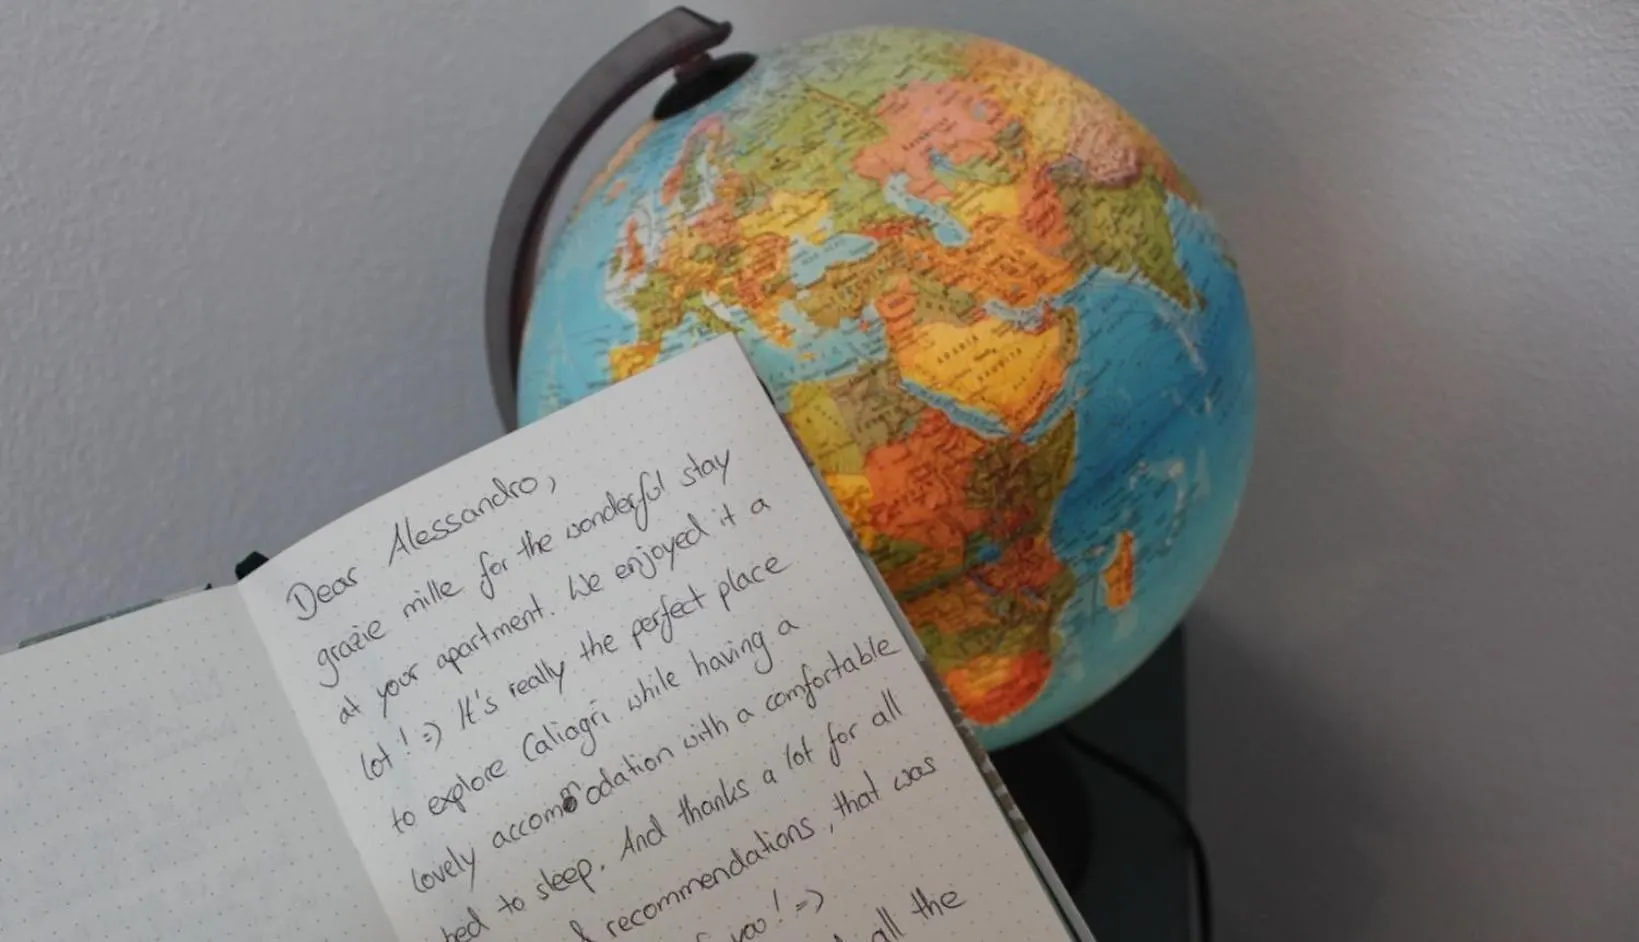 Dear Alessandro,
grazie mille for the wonderful stay
at your apartment. We enjoyed it a
lot! =) It's really the perfect place
to explore Caliagri while having a
lovely accommodation with a comfortable
bed to sleep. And thanks a lot for all
recommendations, that was
you! =)
all the
ARABIA
SAUDITA